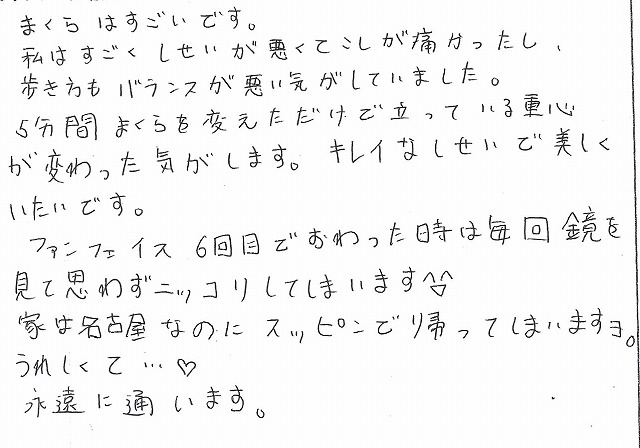 まくらはすごいです。
私はすごくしせいが悪くてこしが痛かったし、
歩き方もバランスが悪い気がしていました。
5分間まくらを変えただけで立っている重心
が変わった気がします。キレイなしせいで美しく
いたいです。
ファンフェイス 6回目でおわった時は毎回鏡を
見て思わずニッコリしてしまいます^▽^
家は名古屋なのにスッピンで帰ってしまいますヨ。
うれしくて…♡
永遠に通います。